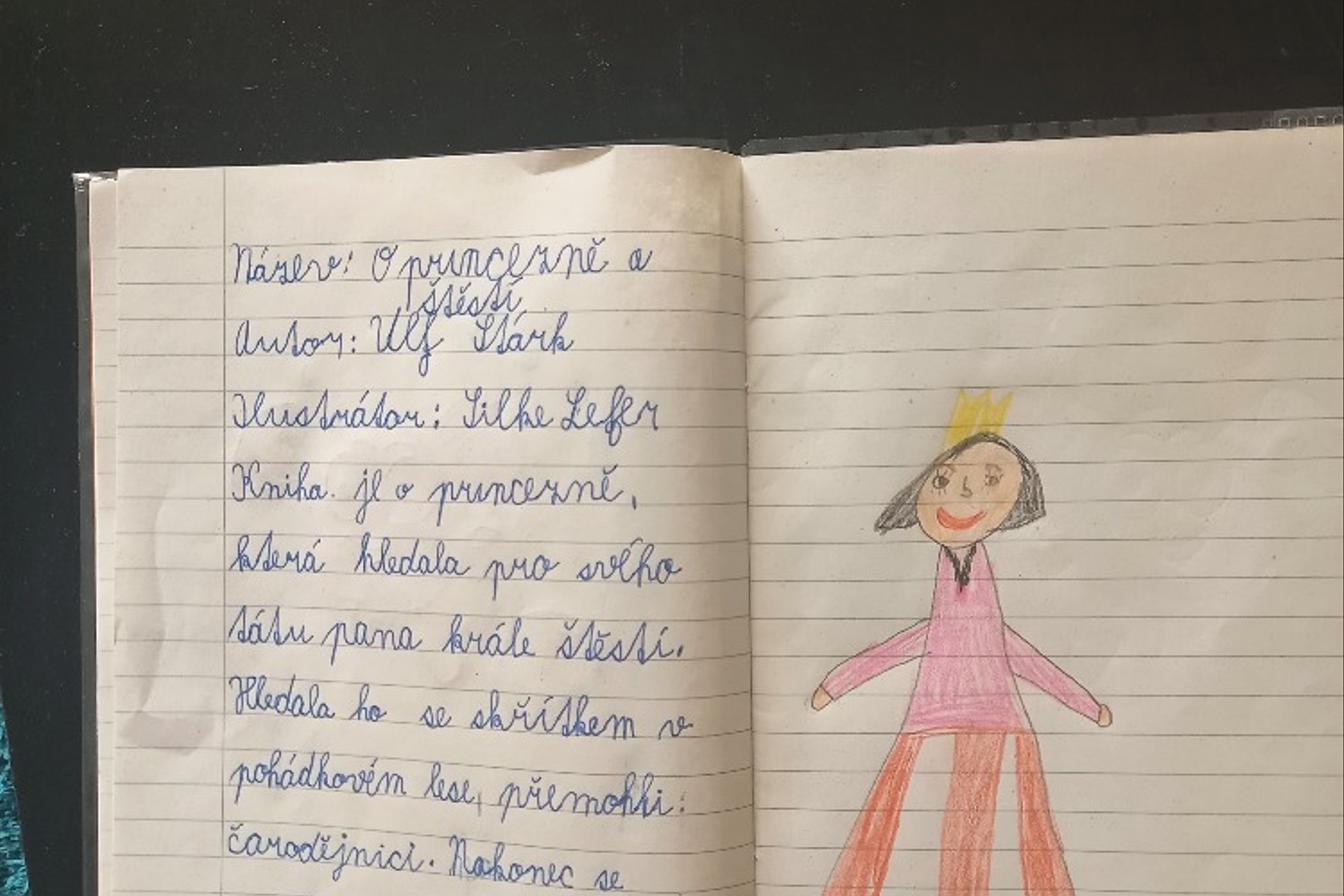 Název: O princezně a
štěstí
Autor: Ulf Stárk
Ilustrátor: Silke Lefer
Kniha je o princezně,
která hledala pro svého
tátu pana krále štěstí.
Hledala ho se skřítkem v
pohádkovém lese, přemohli
čarodějnici. Nakonec se